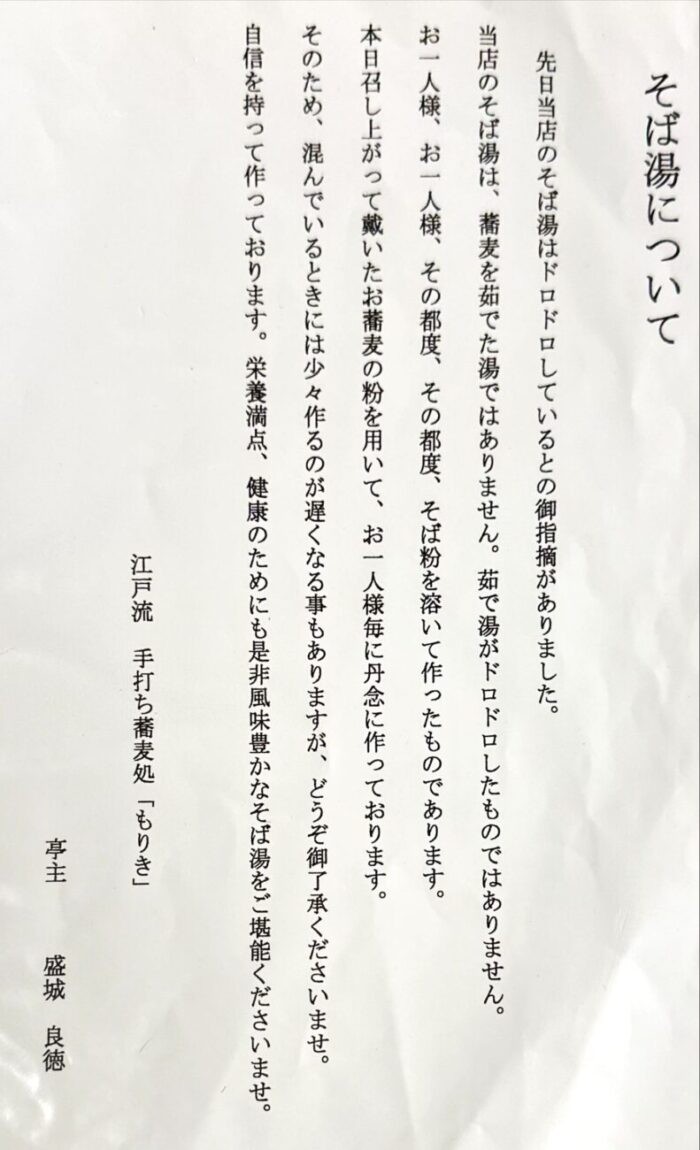 そば湯について
先日当店のそば湯はドロドロしているとの御指摘がありました。
当店のそば湯は、蕎麦を茹でた湯ではありません。茹で湯がドロドロしたものではありません。
お一人様、お一人様、その都度、その都度、そば粉を溶いて作ったものであります。
本日召し上がって戴いたお蕎麦の粉を用いて、お一人様毎に丹念に作っております。
そのため、混んでいるときには少々作るのが遅くなる事もありますが、どうぞ御了承くださいませ。
自信を持って作っております。栄養満点、健康のためにも是非風味豊かなそば湯をご堪能くださいませ。
江戸流　手打ち蕎麦処「もりき」
亭主　盛城　良徳